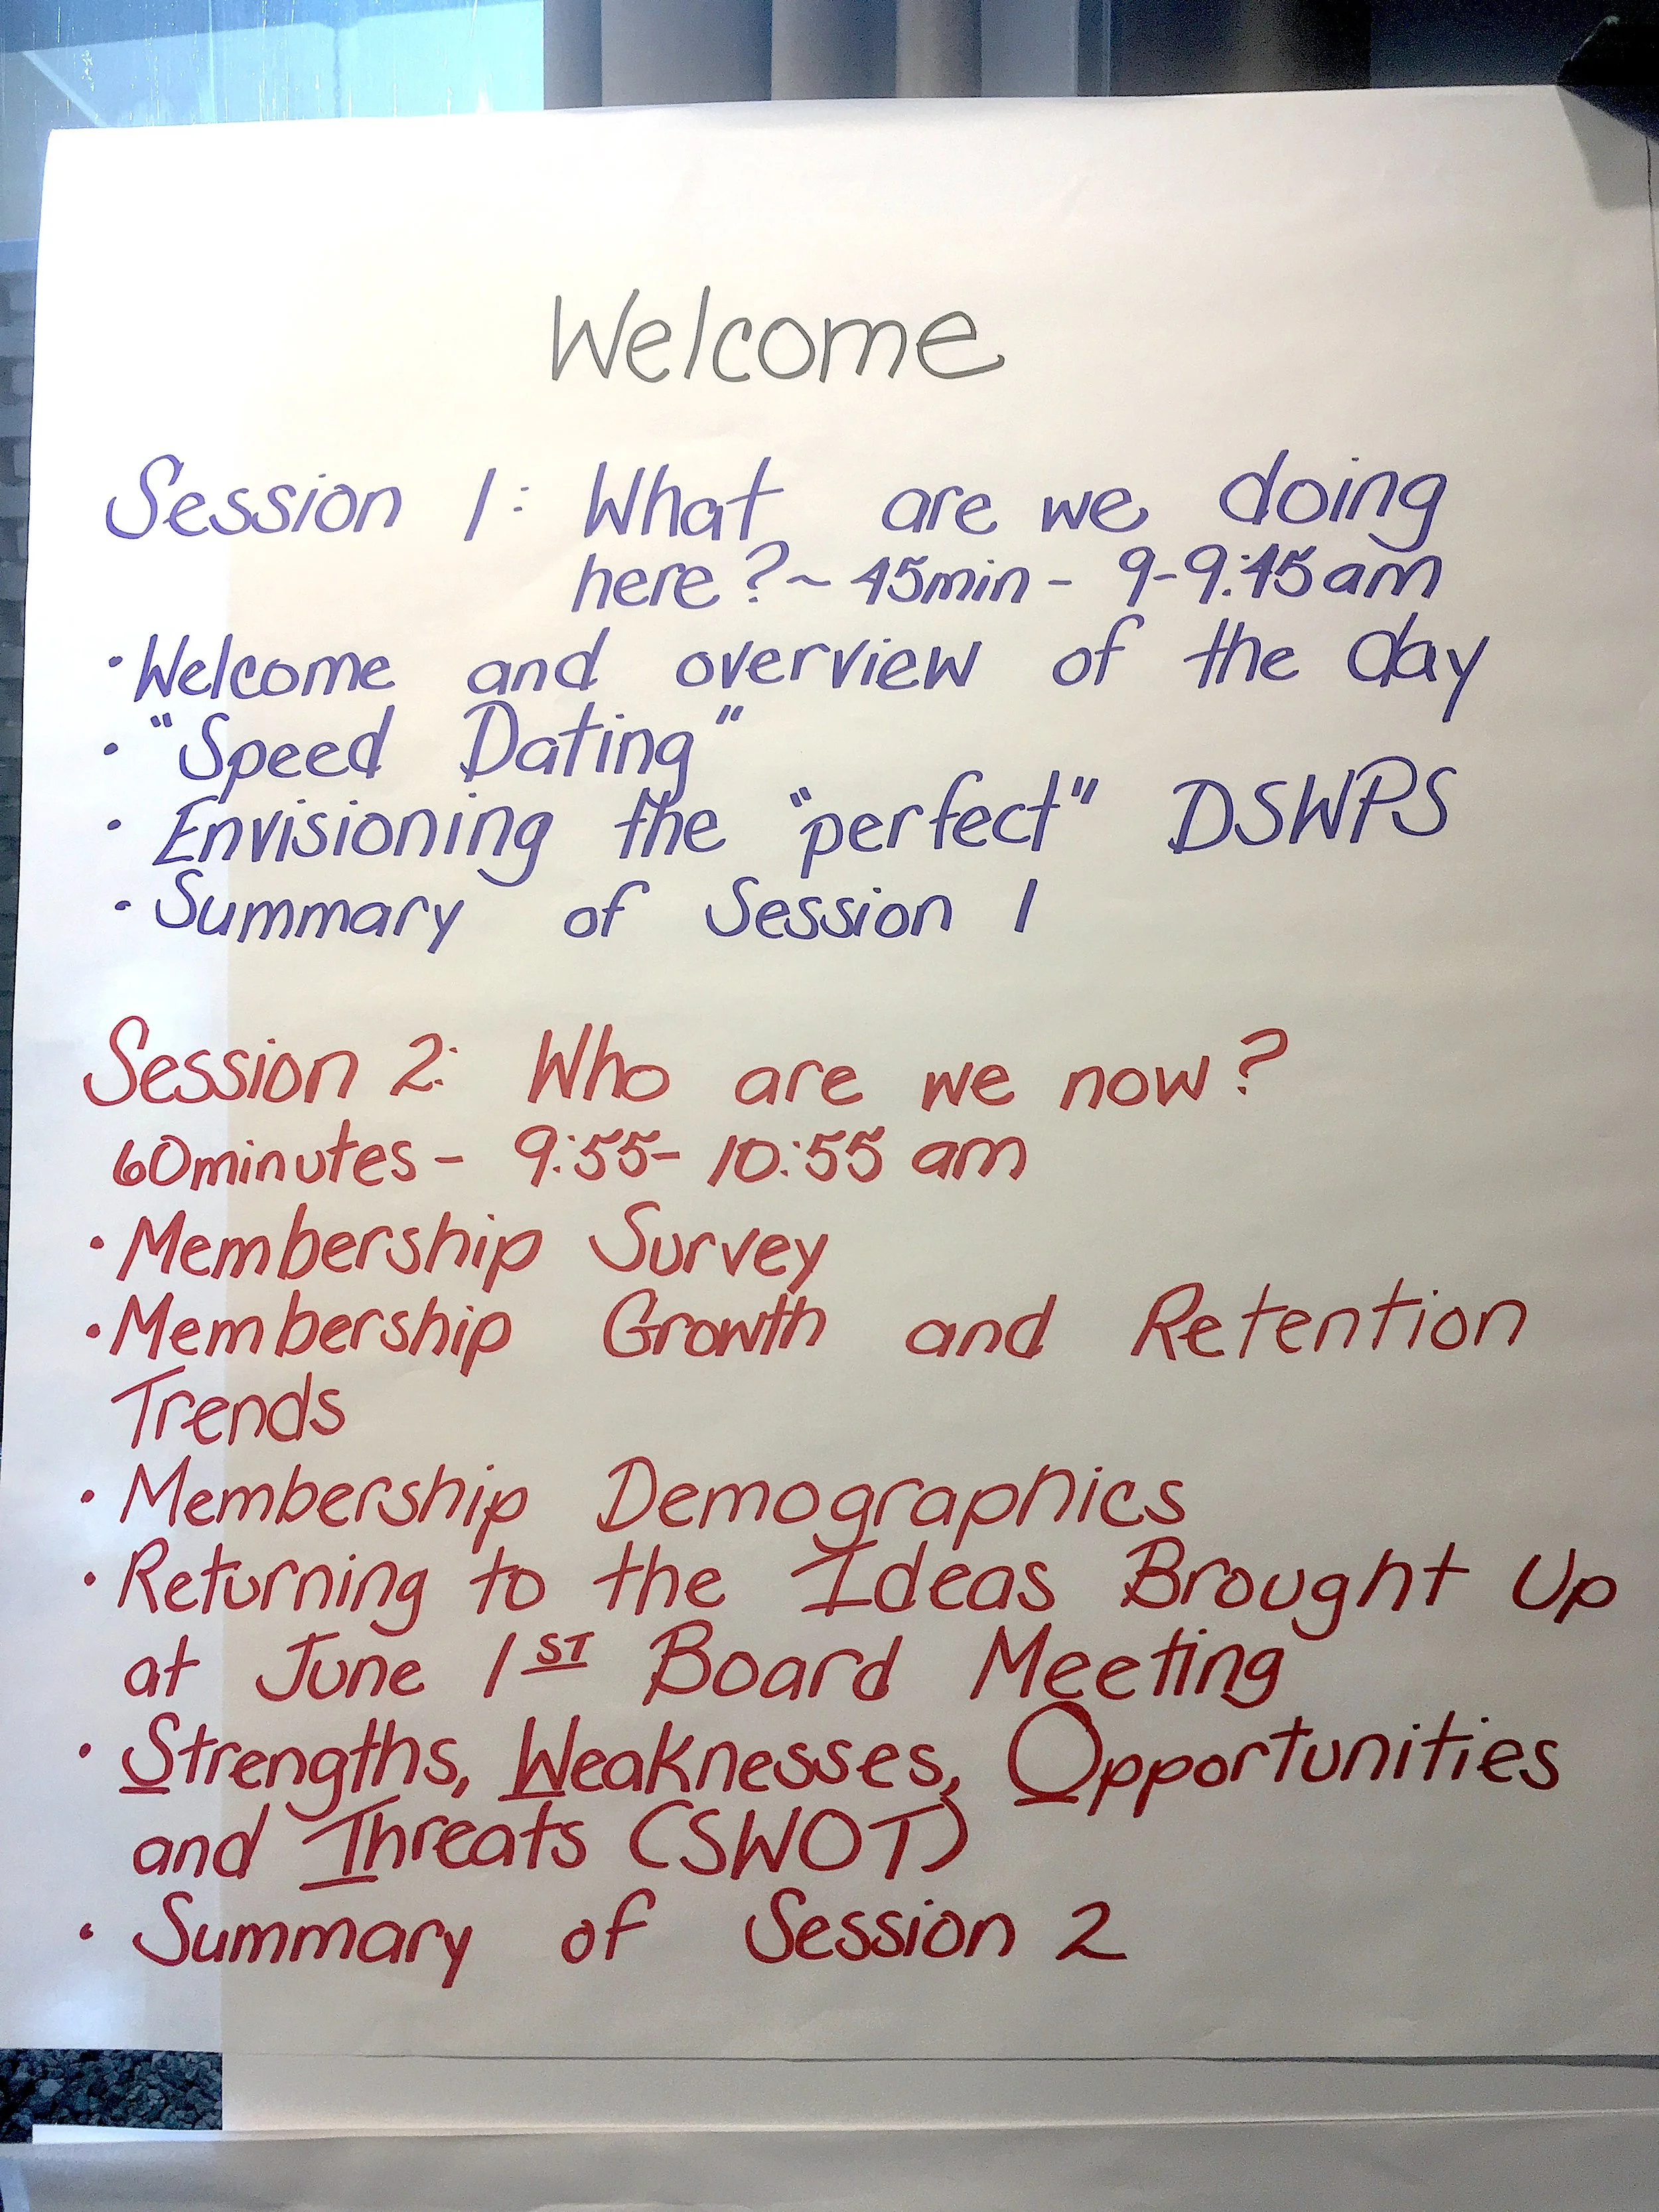 Welcome
Session 1: What are we doing
here? ~ 45min - 9-9:45am
• Welcome and overview of the day
• "Speed Dating"
• Envisioning the "perfect" DSWPS
• Summary of Session 1
Session 2: Who are we now?
60minutes - 9:55- 10:55 am
• Membership Survey
• Membership Growth and Retention
Trends
• Membership Demographics
• Returning to the Ideas Brought Up
at June 1ST Board Meeting
• Strengths, Weaknesses, Opportunities
and Threats (SWOT)
• Summary of Session 2